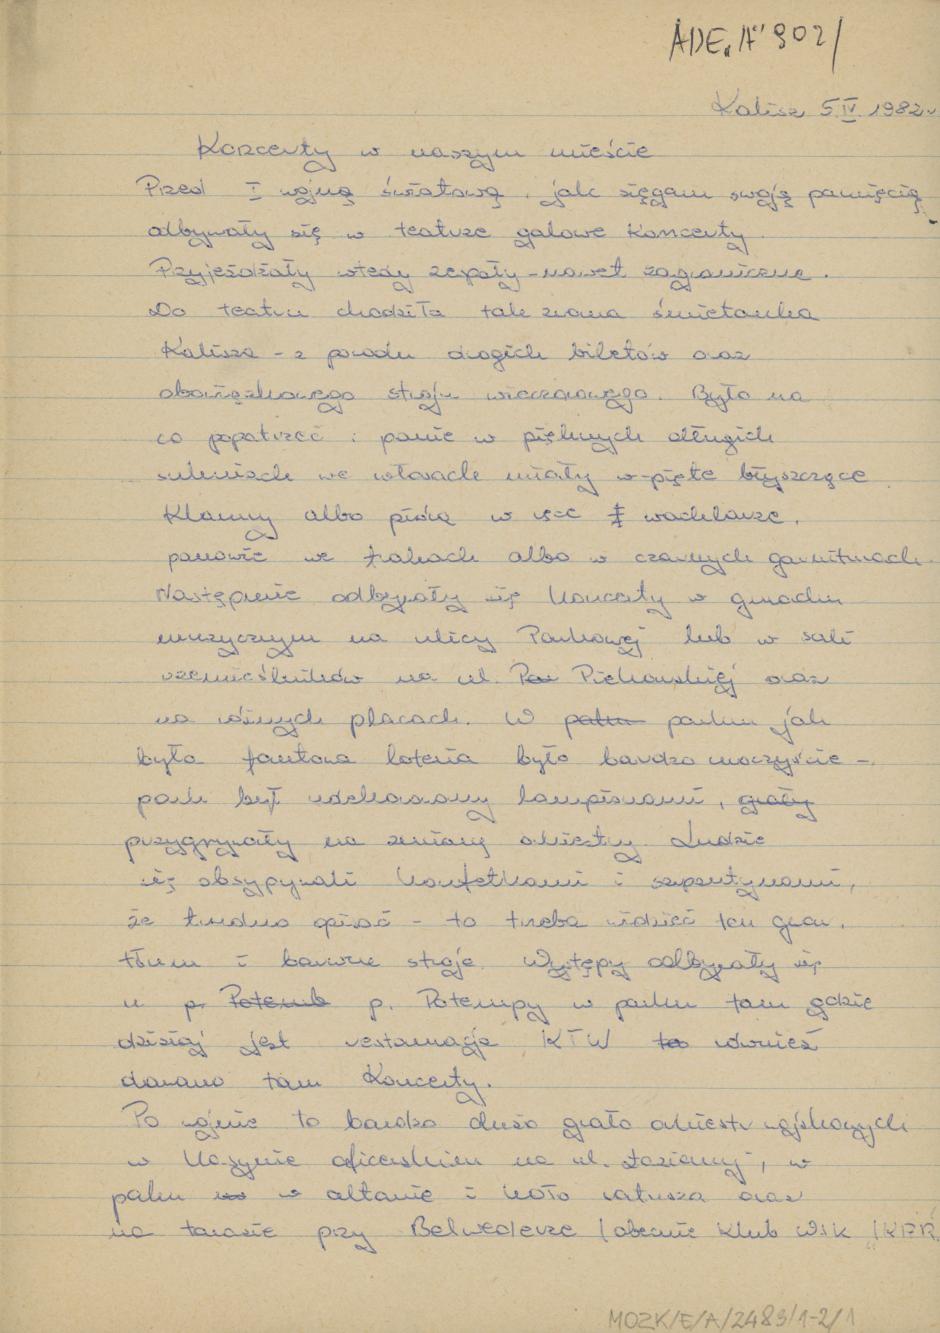 ADE„A" 902/
Kalisz 5.IV.1982r
Koncerty w naszym mieście
Przed I wojną światową, jak sięgam swoją pamięcią
odbywały się w teatrze galowe koncerty.
Przyjeżdżały wtedy zespoły - nawet zagraniczne.
Do teatru chodziła tak zwana śmietanka
Kalisza - z powodu drogich biletów oraz
obowiązkowego stroju wieczorowego. Było na
co popatrzeć: panie w pięknych długich
sukniach we włosach miały w-pięte błyszczące
klamry albo pióra w ręce wachlarze,
panowie we frakach albo w czarnych garniturach.
Następnie odbywały się koncerty w gmachu
muzycznym na ulicy Parkowej lub w sali
rzemieślników na ul. Piekarskiej oraz
na różnych placach. W parku jak
była fantowa loteria było bardzo uroczyście -
park był udekorowany lampionami, grały
przygrywały na zmianę orkiestry. Ludzie
się obsypywali konfetkami i serpentynami,
że trudno opisać - to trzeba widzieć ten gwar,
tłum i barwne stroje. Występy odbywały się
u p. Potemb p. Potempy w parku tam gdzie
dzisiaj jest restauracja KTW również
dawano tam koncerty.
Po wojnie to bardzo dużo grało orkiestr wojskowych
w Kasynie oficerskim na ul. Łaziennej, w
parku w altanie i koło ratusza oraz
na tarasie przy Belwederze (obecnie klub WSK
MOZK/E/A/2483/1-2/1